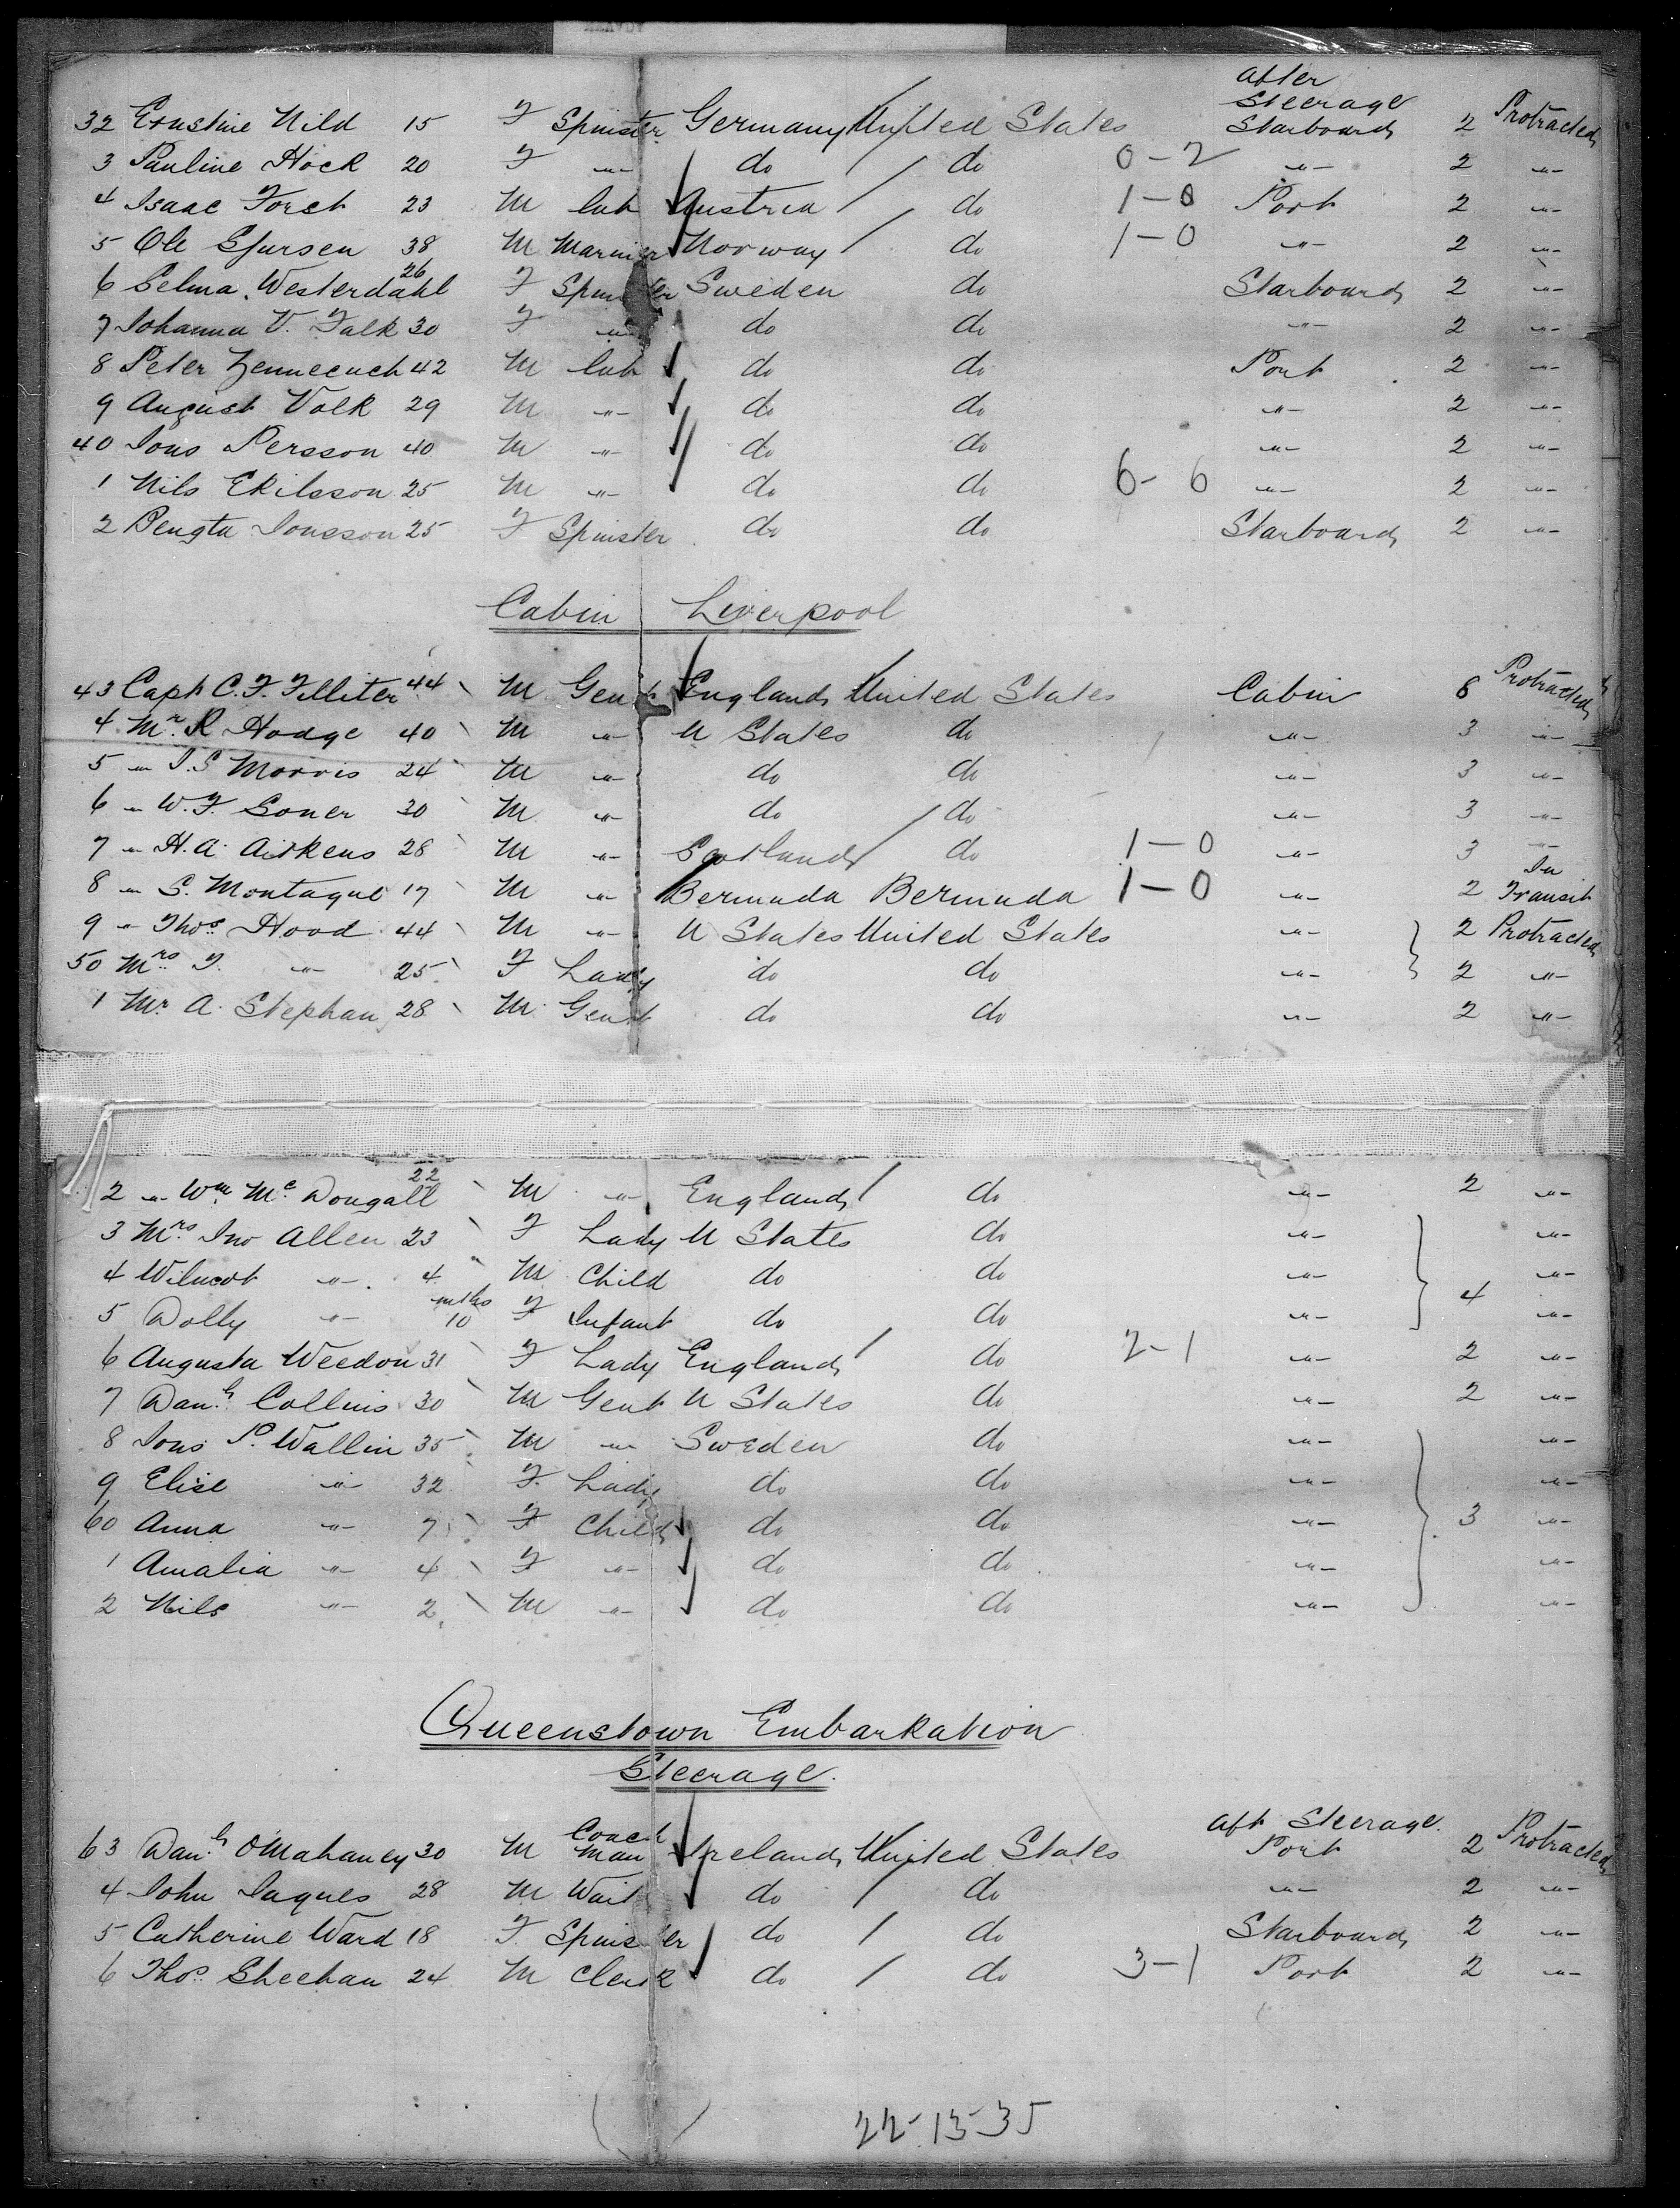 after
Steerage
32 Ernstine Hild 15 F Spinster Germany United States Starboard 2 Protracted
3 Pauline Höck 20 F -"- do do 0-2 -"- 2 -"-
4 Isaac Forst 23 M lab Austria do 1-0 Port 2 -"-
5 Ole Sjursen 38 M Mariner Norway do 1-0 -"- 2 -"-
6 Selma Westerdahl 26 F Spinster Sweden do Starboard 2 -"-
7 Johanna V. Falk 30 F -"- do do -"- 2 -"-
8 Peter 42 M lab do do Port 2 -"-
9 August Valk 29 M -"- do do -"- 2 -"-
40 Jons Persson 40 M -"- do do -"- 2 -"-
1 Nils Ekilsson 25 M -"- do do 6-6 -"- 2 -"-
2 Bengta Jonsson 25 F Spinster do do Starboard 2 -"-
Cabin Liverpool
43 Capt C. F. Filliter 44 M Gent England United States Cabin 8 Protracted
4 Mr. R Hodge 40 M -"- U States do -"- 3 -"-
5 -"- J. S Morris 24 M -"- do do -"- 3 -"-
6 -"- W. F. Soner 30 M -"- do do -"- 3 -"-
7 -"- H. A. Aitkens 28 M -"- Scotland do 1-0 -"- 3 -"-
8 -"- S. Montague 17 M -"- Bermuda Bermuda 1-0 -"- 2 In Transit
9 -"- Thos. Hood 44 M -"- U States United States -"- 2 Protracted
50 Mrs F. -"- 25 F Lady do do -"- 2 -"-
1 Mr A. Stephan 28 M Gent do do -"- 2 -"-
2 -"- Wm. Mc. Dougall 22 M -"- England do -"- 2 -"-
3 Mrs. Jno Allen 23 F Lady U States do -"- -"-
4 Wilmot -"- 4 M Child do do -"- -"-
5 Dolly -"- mths 10 F Infant do do -"- 4 -"-
6 Augusta Weedon 31 F Lady England do 2-1 -"- 2 -"-
7 Danl. Collins 30 M Gent U States do -"- 2 -"-
8 Jons P. Wallin 35 M -"- Sweden do -"- -"-
9 Elise -"- 32 F. Lady do do -"- -"-
60 Anna -"- 7 F Child do do -"- 3 -"-
1 Amalia -"- 4 F -"- do do -"- -"-
2 Nils -"- 2 M -"- do do -"- -"-
Queenstown Embarkation
Steerage.
aft Steerage.
63 Danl. O'Mahaney 30 M Coach Man Ireland United States Port 2 Protracted
4 John Jaques 28 M Wait do do -"- 2 -"-
5 Catherine Ward 18 F. Spinster do do Starboard 2 -"-
6 Thos. Sheehan 24 M Clerk do do 3-1 Port 2 -"-
22-13-35